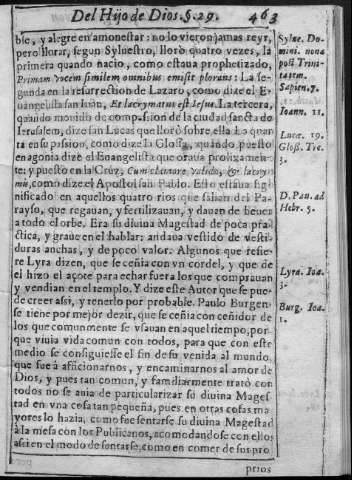 Del Hijo de Dios. §. 29. 463
ble, y alegre en amonestar: no lo vieron jamas reyr,
pero llorar, segun Syluestro, lloró quatro vezes, la
primera quando nacio, como estaua prophetizado,
Primam vocem similem omnibus emisit plorans: La se-
gunda en la resurrection de Lazaro, como dize el E-
uangelista san Iuan, Et lacrymatus est Iesus. La tercera,
quando mouido de compassion de la ciudad sancta de
Ierusalem, dize san Lucas que lloró sobre ella. La quar
ta en su passion, como dize la Glossa, quando puesto
en agonia dize el Euangelista que oraua prolixamen-
te: y puesto en la Cruz, Cum clamore valido, & lacry-
mis, como dize el Apostol san Pablo. Esto estaua sig-
nificado en aquellos quatro rios que salien del Pa-
rayso, que regauan, y fertilizauan, y dauan de beuer
a todo el orbe. Era su diuina Magestad de poca pra-
ctica, y graue en el hablar: andaua vestido de vesti-
duras anchas, y de poco valor. Algunos que refie-
re Lyra dizen, que se ceñia con vn cordel, y que de
el hizo el açote para echar fuera los que comprauan
y vendian en el templo. Y dize este Autor que se pue-
de creer assi, y tenerlo por probable. Paulo Burgen-
se tiene por mejor dezir, que se ceñia con ceñidor de
los que comunmente se vsauan en aquel tiempo, por-
que viuia vida comun con todos, para que con este
medio se consiguiesse el fin de su venida al mundo,
que fue à afficionarnos, y encaminarnos al amor de
Dios, y pues tan comun, y familiarmente trató con
todos no se auia de particularizar su diuina Mages
tad en vna cosa tan pequeña, pues en otras cosas ma
yores lo hazia, como fue sentarse su diuina Magestad
à la mesa con los Publicanos, acomodandose con ellos
assi en el modo de sentarse, como en comer de sus pro
prios
Sylue. Do-
mini. nona
post Trini-
tatem.
Sapien. 7.
Ioann. 11.
Lucæ. 19.
Gloss. Tre.
3.
D. Pau. ad
Hebr. 5.
Lyra. Ioa.
3.
Burg. Ioa.
1.